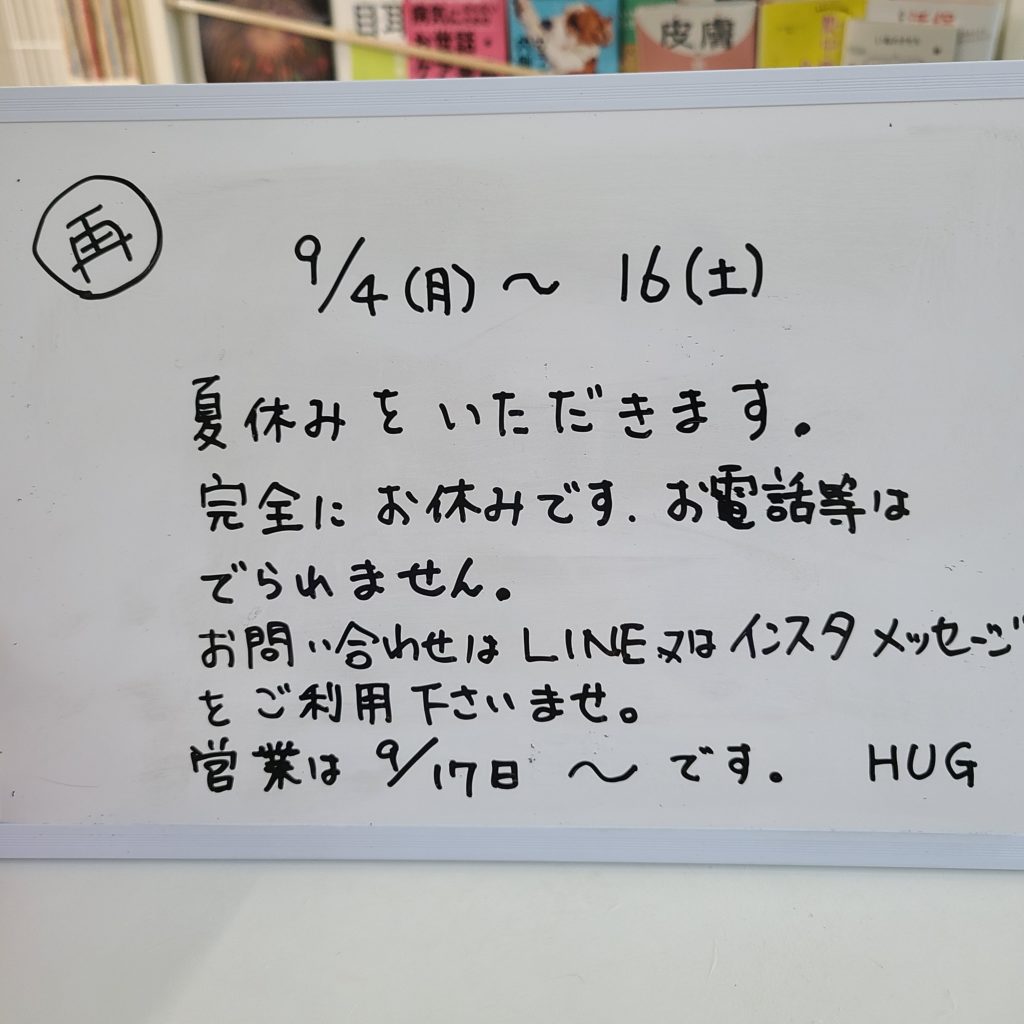 目耳
病気に
お世話・
ケア
皮膚
再
9/4(月)～ 16(土)
夏休みをいただきます。
完全にお休みです.お電話等は
でられません。
お問い合わせはLINE又はインスタメッセージ
をご利用下さいませ。
営業は 9/17日 ～です。 HUG